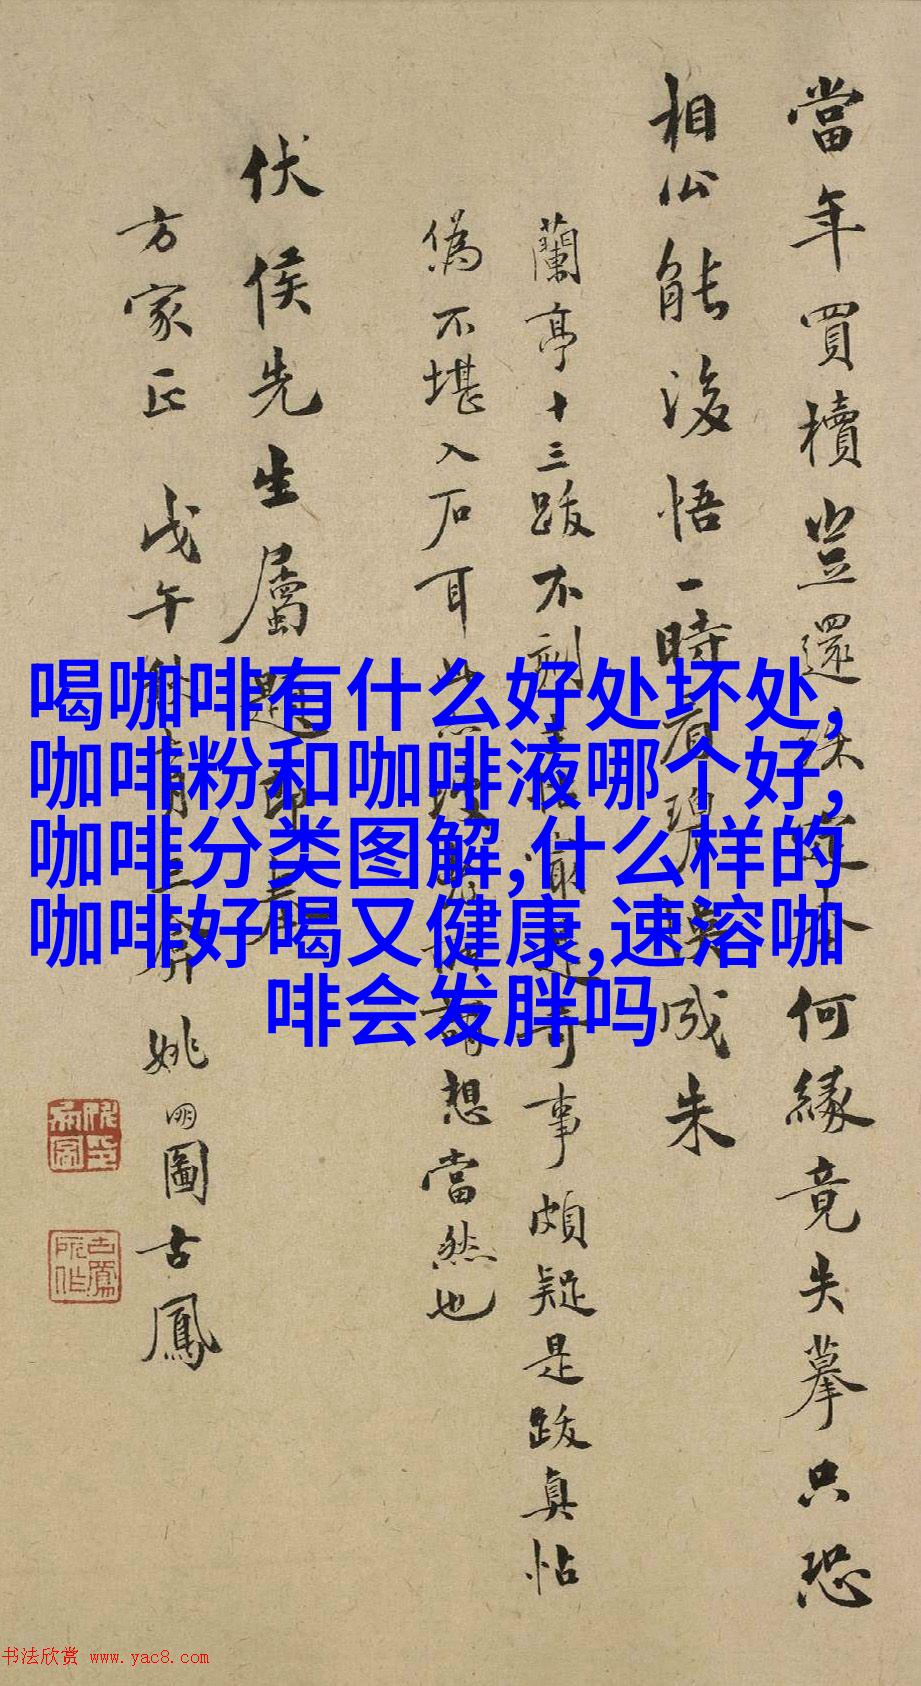 當年買櫝豈還珠定本何緣竟失摹只恐
相公能浚悟一時看碧誤成朱
蘭亭十三跋不刻事頗疑是跋真帖
偽不堪入石耳想當然也
伏侯先生屬題即希
方家正 戊午姚朋圖古鳳
喝咖啡有什么好处坏处,
咖啡粉和咖啡液哪个好,
咖啡分类图解,什么样的
咖啡好喝又健康,速溶咖
啡会发胖吗
书法欣赏 www.yac8.com